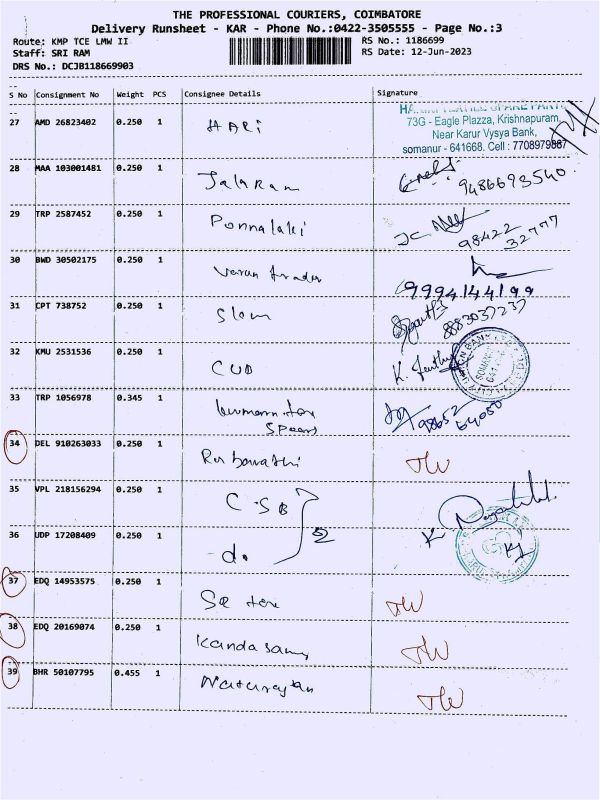 THE PROFESSIONAL COURIERS, COIMBATORE
Delivery Runsheet - KAR - Phone No.:0422-3505555 - Page No.:3
Route: KMP TCE LMW II RS No.: 1186699
Staff: SRI RAM RS Date: 12-Jun-2023
DRS No.: DCJB118669903
S No Consignment No Weight PCS Consignee Details Signature
27 AMD 26823402 0.250 1 HARi
73G - Eagle Plazza, Krishnapuram,
Near Karur Vysya Bank,
somanur - 641668. Cell : 7708979887
28 MAA 103001481 0.250 1 JalaRam 9486693540
29 TRP 2587452 0.250 1 Ponnalaki 98422
32777
30 BWD 30502175 0.250 1 Varun trader
9994144199
31 CPT 738752 0.250 1 Slom 8883037237
32 KMU 2531536 0.250 1 CUB
33 TRP 1056978 0.345 1 98652
64050
34 DEL 910263033 0.250 1
35 VPL 218156294 0.250 1 C-SB
36 UDP 17208409 0.250 1 -do.
37 EDQ 14953575 0.250 1
38 EDQ 20169074 0.250 1 Kandasamy
39 BHR 50107795 0.455 1 Natarajan